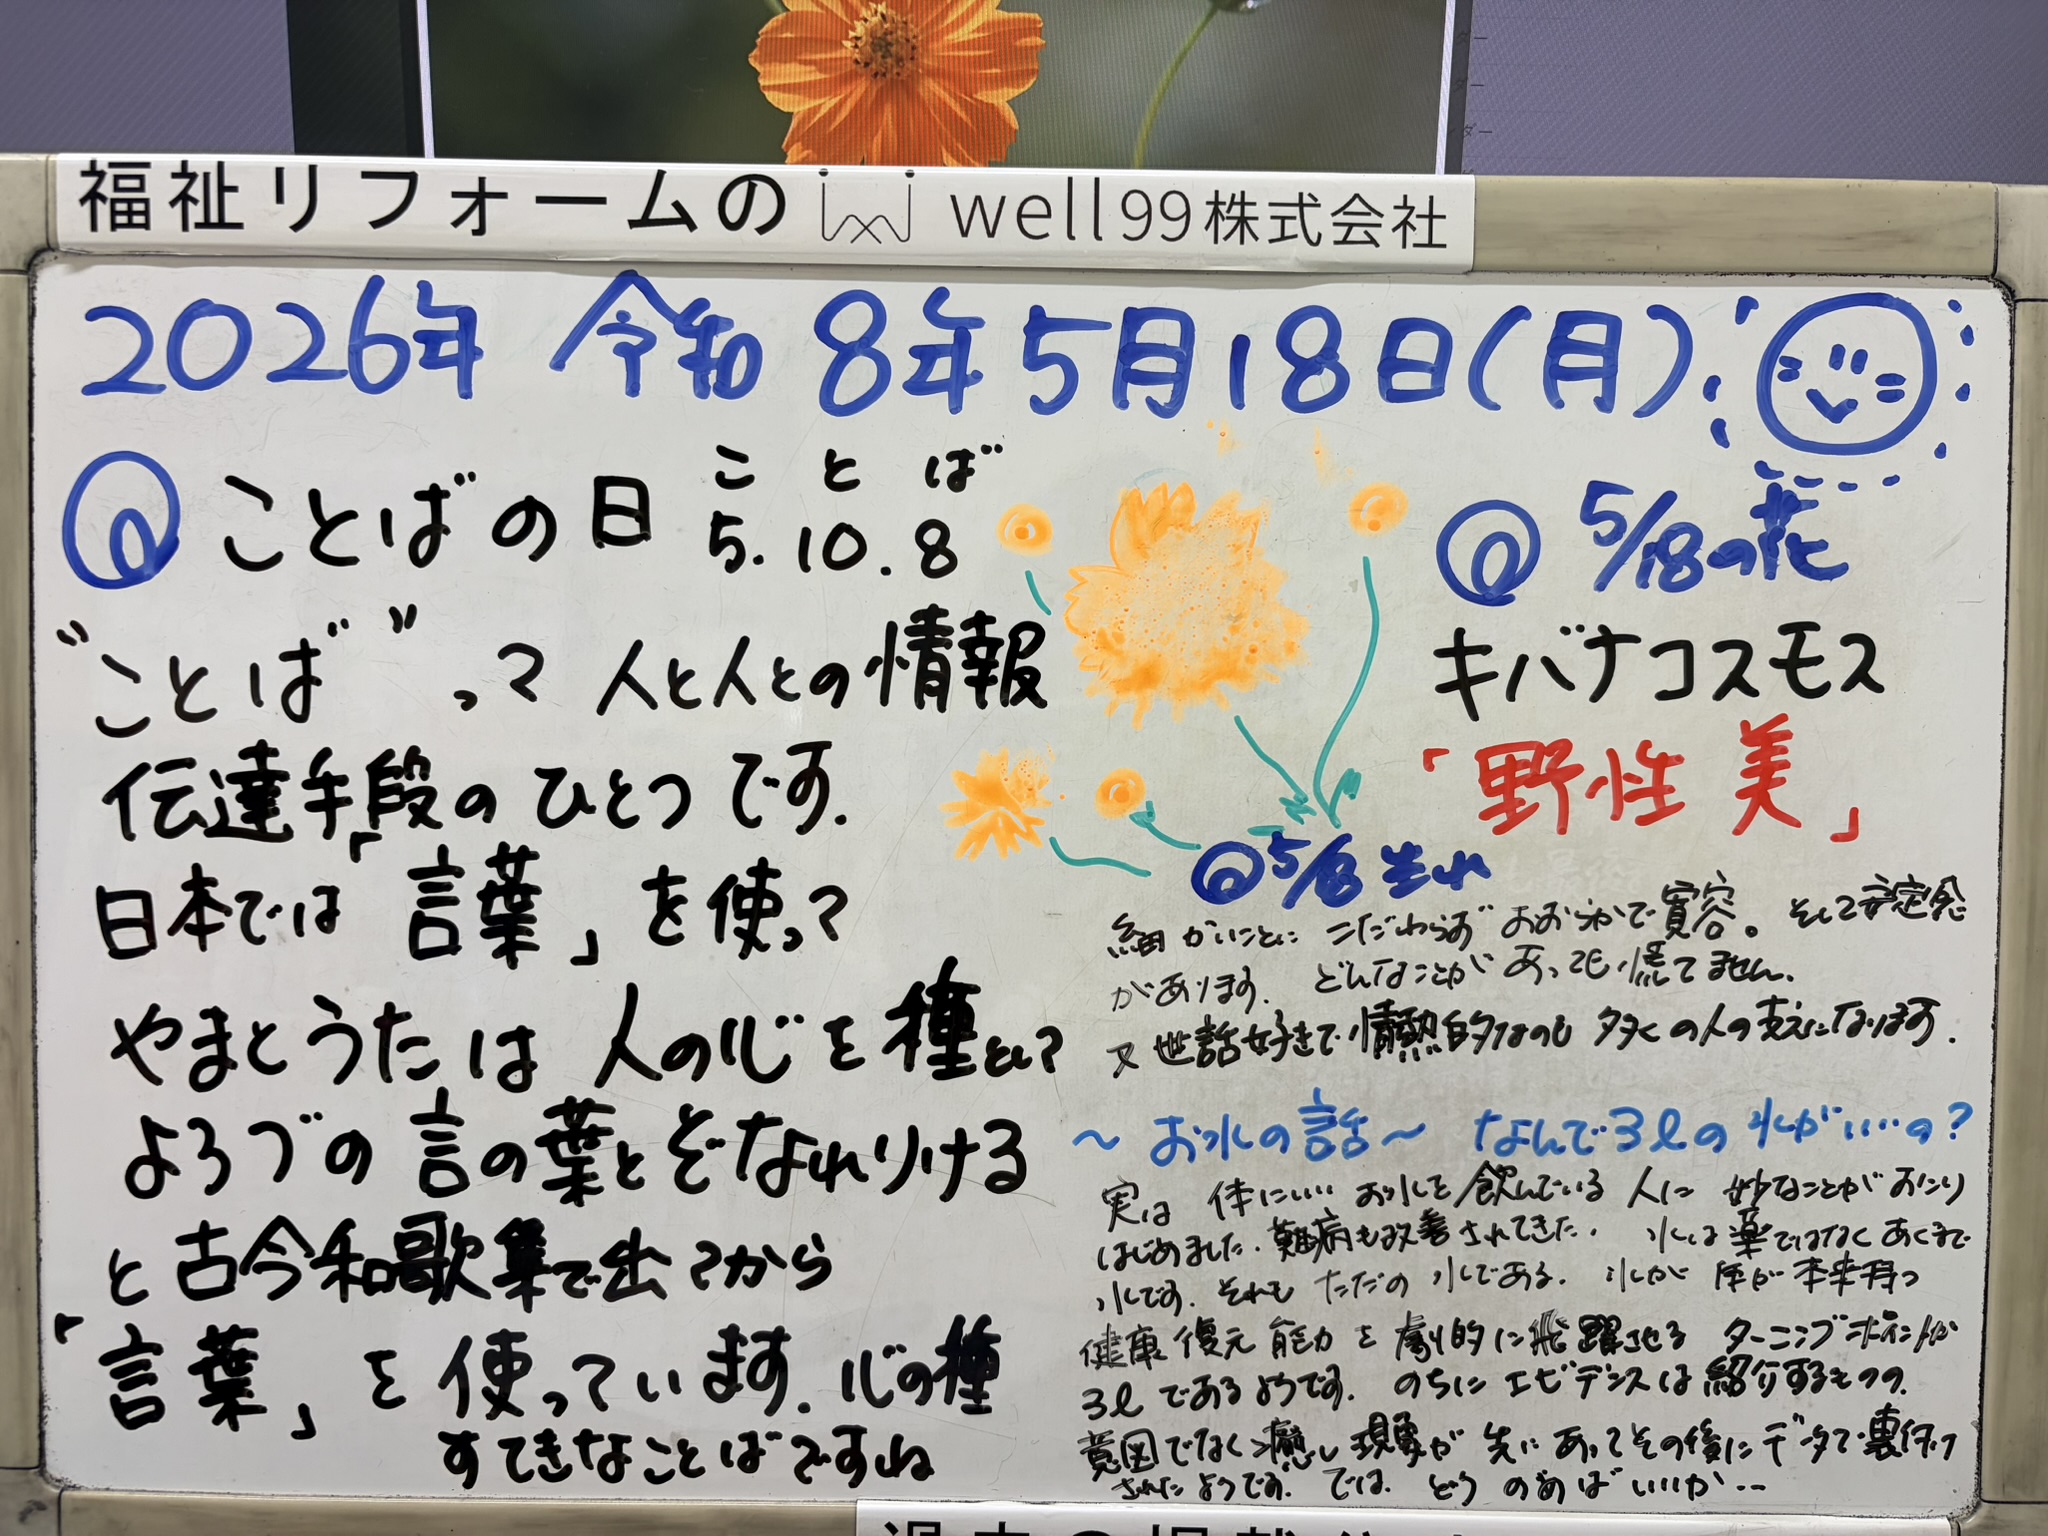 福祉リフォームの well99株式会社
2026年 令和8年5月18日(月)
ことばの日 5.10.8
こ と ば
"ことば"って 人と人との情報
伝達手段のひとつです.
日本では「言葉」を使って
やまとうたは 人の心を種として
よろづの言の葉とぞなれりける
と古今和歌集で出てから
「言葉」を使っています.心の種
すてきなことばですね
5/18の花
キバナコスモス
「野性美」
5/18生れ
細かいことに こだわらず おおらかで寛容。そして安定感
があります. どんなことが あっても慌てません.
又 世話好きで 情熱的なのも 多くの人の支えになります.
〜お水の話〜 なんで3ℓの水がいいの?
実は 体にいい お水を飲んでいる 人に 妙なことがおこり
はじめました. 難病も改善されてきた. 水は薬ではなく あくまで
水です. それも ただの 水である. 水が 体が 本来持つ
健康 復元 能力 を 劇的に飛躍させる ターニングポイントが
3ℓであるようです. のちに エビデンスは紹介するものの.
意図でなく癒し現象が 先に あってその後にデータで裏付け
されたようです. では どう のめば いいか…